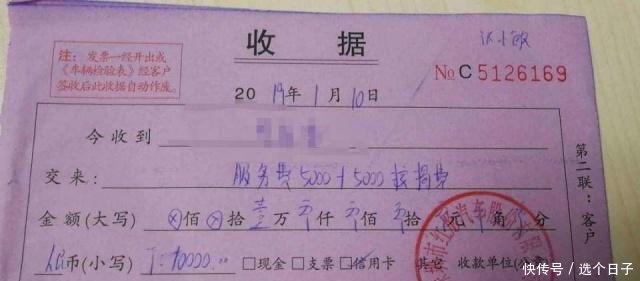 收据
注：发票一经开出或
《车辆检验表》经客户
签收后此收据自动作废。
No C 5126169
2019年1月10日
今收到
交来：服务费5000+5000按揭费
金额（大写）ⓧ佰ⓧ拾壹万零仟零佰零拾元零角分
人民币（小写）10000.00 □现金 □支票 □信用卡 其它 收款单位
第二联：客户
红
汽车
快传号／选个日子